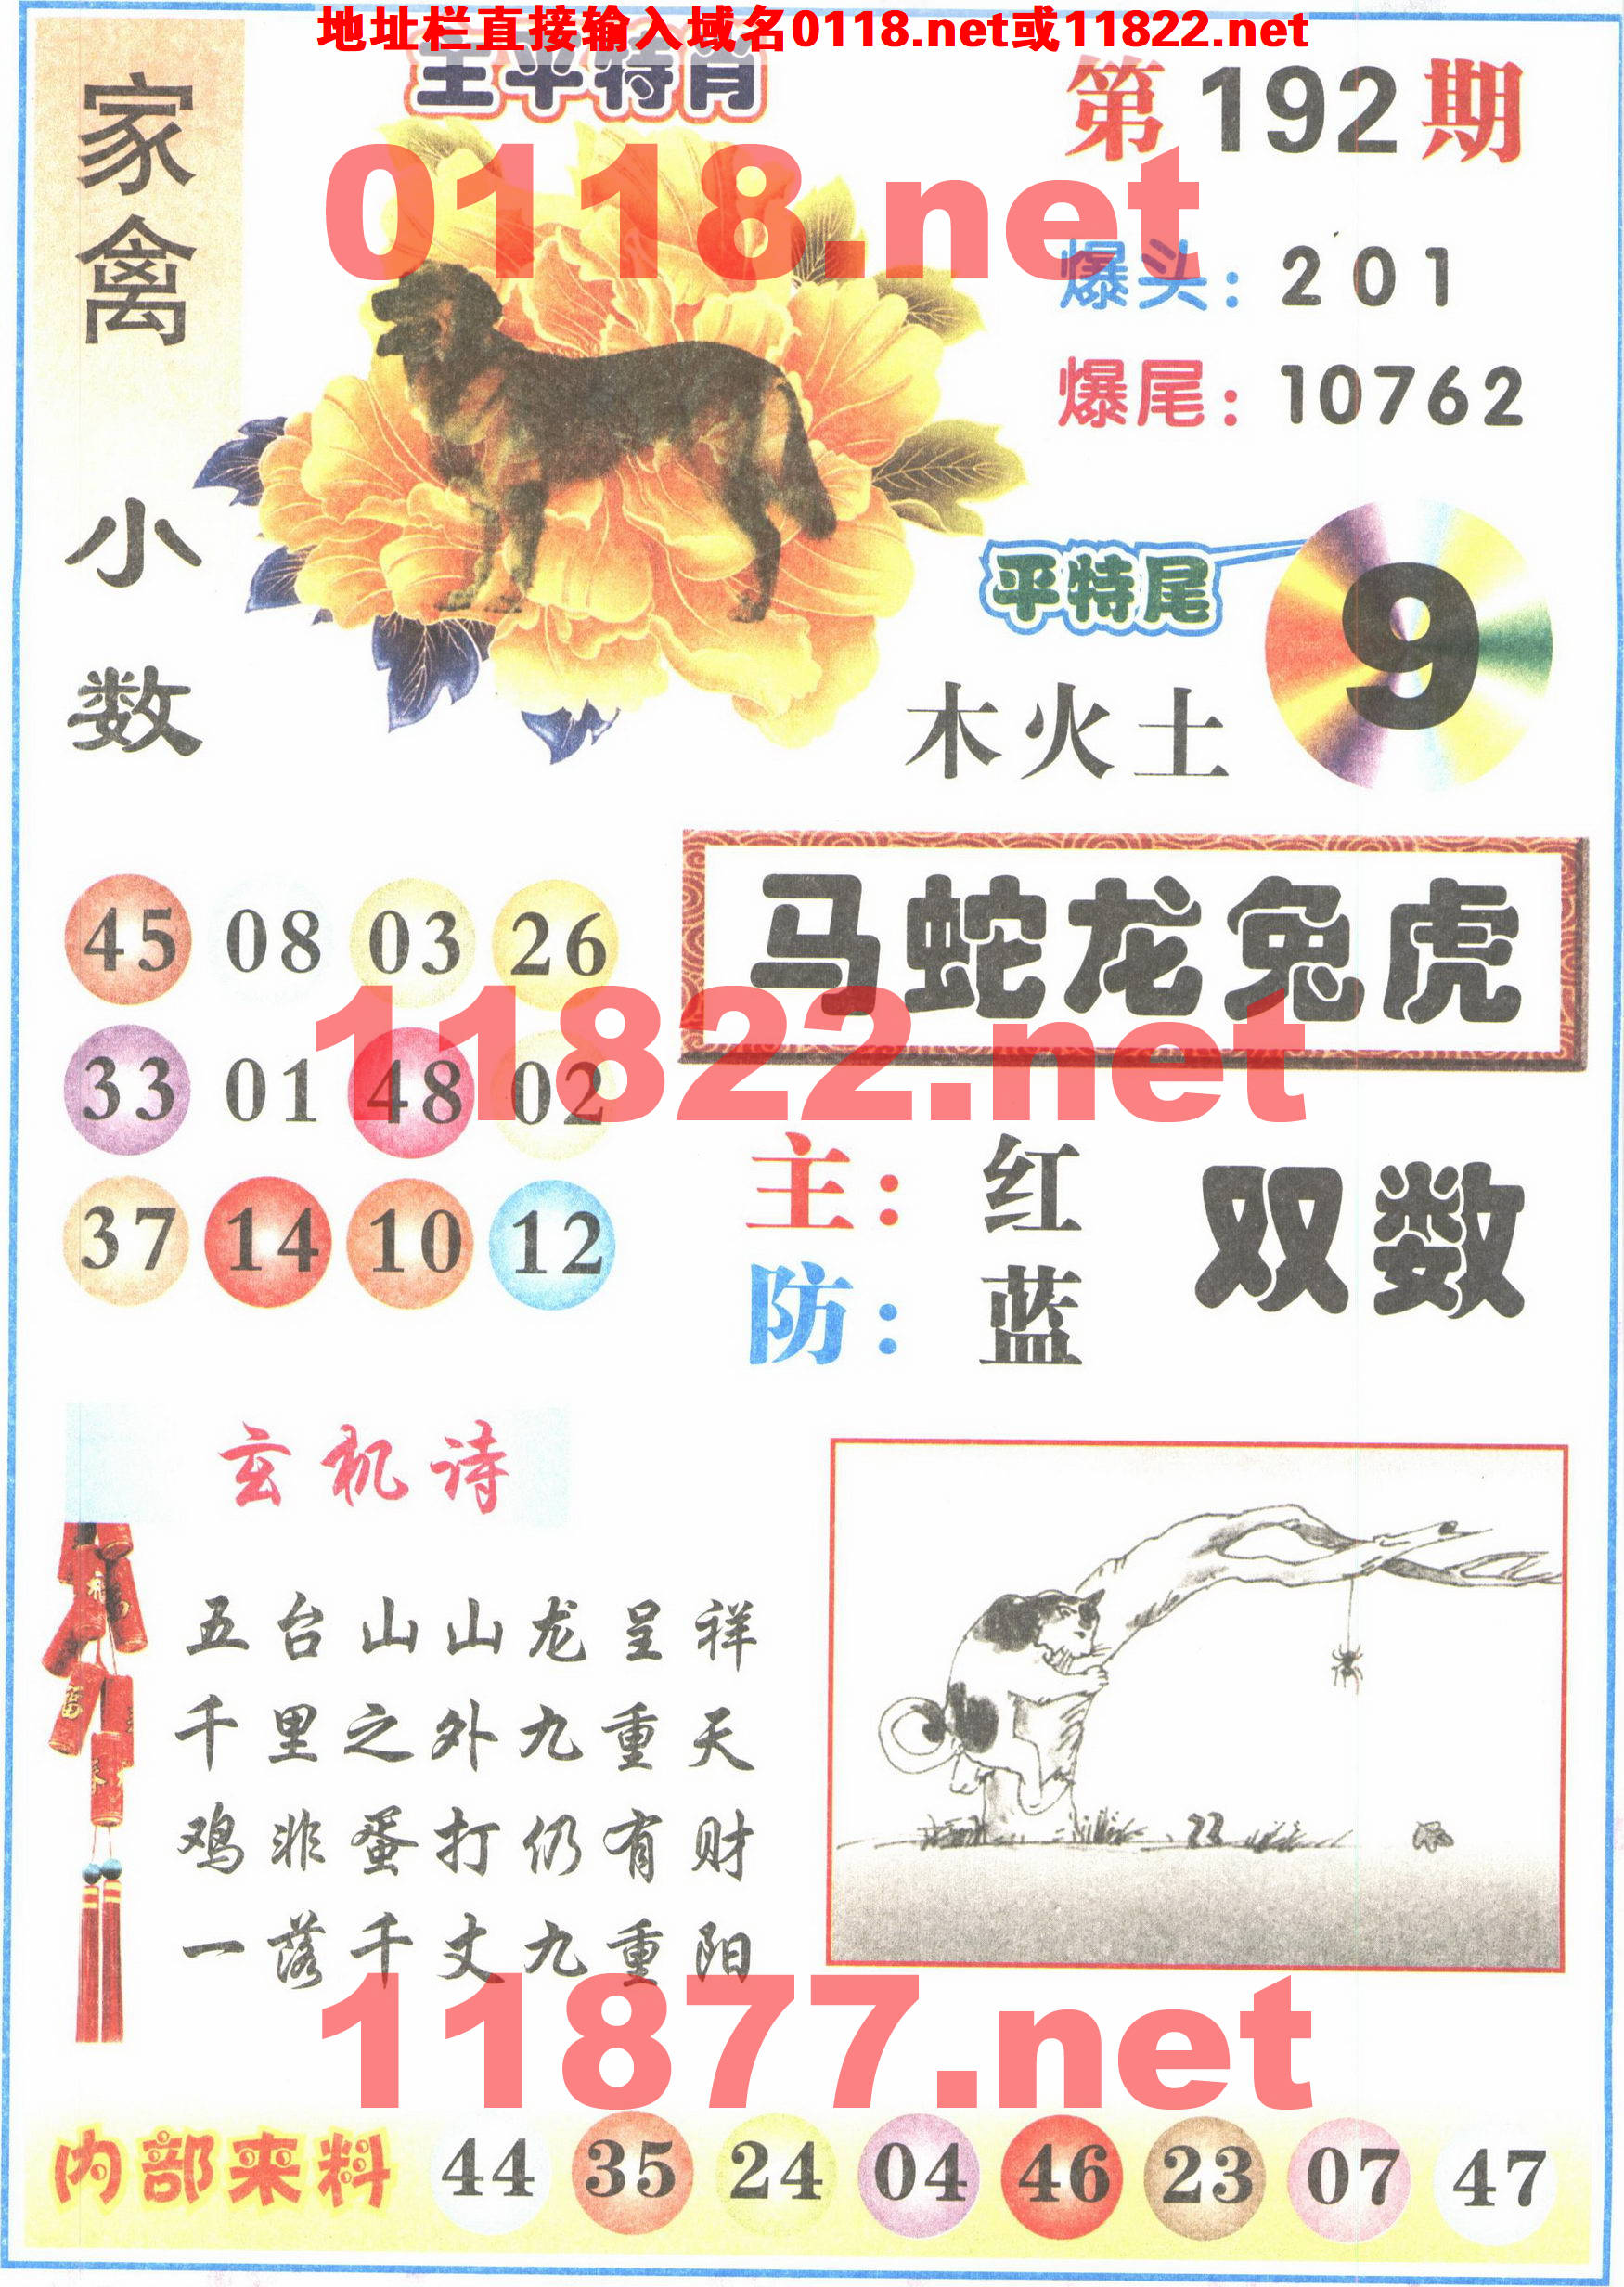 地址栏直接输入域名0118.net或11822.net
主平特肖
家禽
小数
第192期
0118.net
爆头：201
爆尾：10762
平特尾
9
木火土
45 08 03 26
33 01 48 02
37 14 10 12
马蛇龙兔虎
11822.net
主：红
防：蓝
双数
玄机诗
五台山山龙呈祥
千里之外九重天
鸡非蛋打仍有财
一落千丈九重阳
11877.net
内部来料 44 35 24 04 46 23 07 47